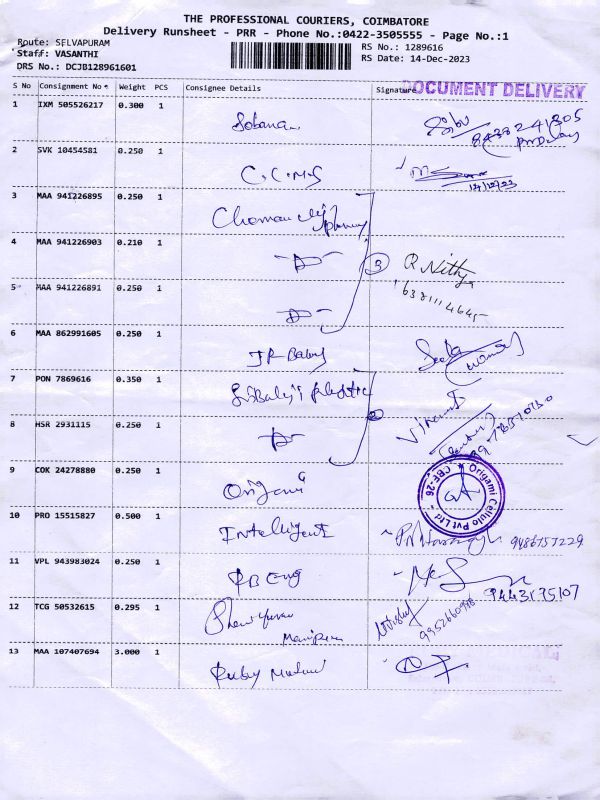 THE PROFESSIONAL COURIERS, COIMBATORE
Delivery Runsheet - PRR - Phone No.:0422-3505555 - Page No.:1
Route: SELVAPURAM
RS No.: 1289616
Staff: VASANTHI
RS Date: 14-Dec-2023
DRS No.: DCJB128961601
S No Consignment No Weight PCS Consignee Details Signature
DOCUMENT DELIVERY
1 IXM 505526217 0.300 1 Sobana
8438241305
2 SVK 10454581 0.250 1 C.C.M.S
14/12/23
3 MAA 941226895 0.250 1
4 MAA 941226903 0.210 1 -D- 3 R Nithy
5 MAA 941226891 0.250 1 -D- 6381114645
6 MAA 862991605 0.250 1 JR Baby
7 PON 7869616 0.350 1 plastic
8 HSR 2931115 0.250 1 -D- 2
9 COK 24278880 0.250 1 Origami
Origami Cellulo Pvt Ltd CBE-26
10 PRO 15515827 0.500 1 Intelligent 9486757229
11 VPL 943983024 0.250 1 RB Eng 9443175107
12 TCG 50532615 0.295 1 9952660998
13 MAA 107407694 3.000 1 Ruby